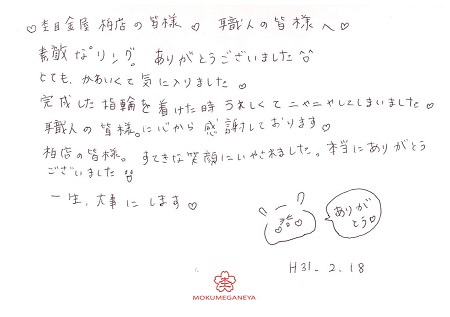 ♡杢目金屋 柏店の皆様 職人の皆様へ♡
素敵なリング。ありがとうございました
とても、かわいくて気に入りました♡
完成した指輪を着けた時うれしくてニヤニヤしてしまいました♡
職人の皆様。に心から感謝しております♡
柏店の皆様。すてきな笑顔にいやされました。本当にありがとう
ございました
一生、大事にします♡
ありが
とう♡
H31.2.18
MOKUMEGANEYA